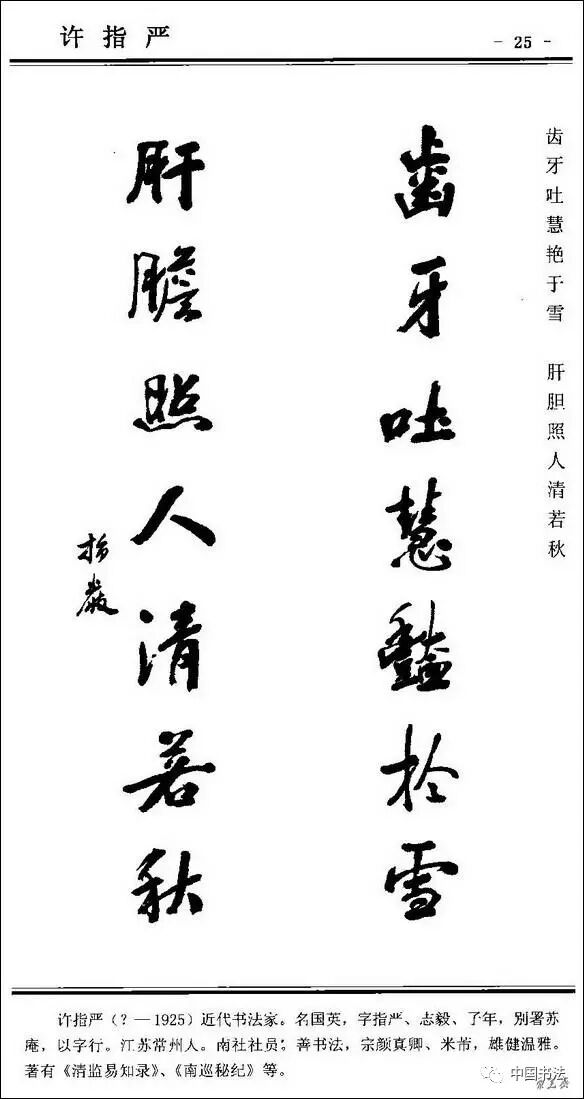 许指严
- 25 -
齿牙吐慧艳于雪 肝胆照人清若秋
齒牙吐慧豔於雪
肝膽照人清若秋
指嚴
许指严(？—1925)近代书法家。名国英，字指严、志毅、了年，别署苏
庵，以字行。江苏常州人。南社社员；善书法，宗颜真卿、米芾，雄健温雅。
著有《清监易知录》、《南巡秘纪》等。
中国书法